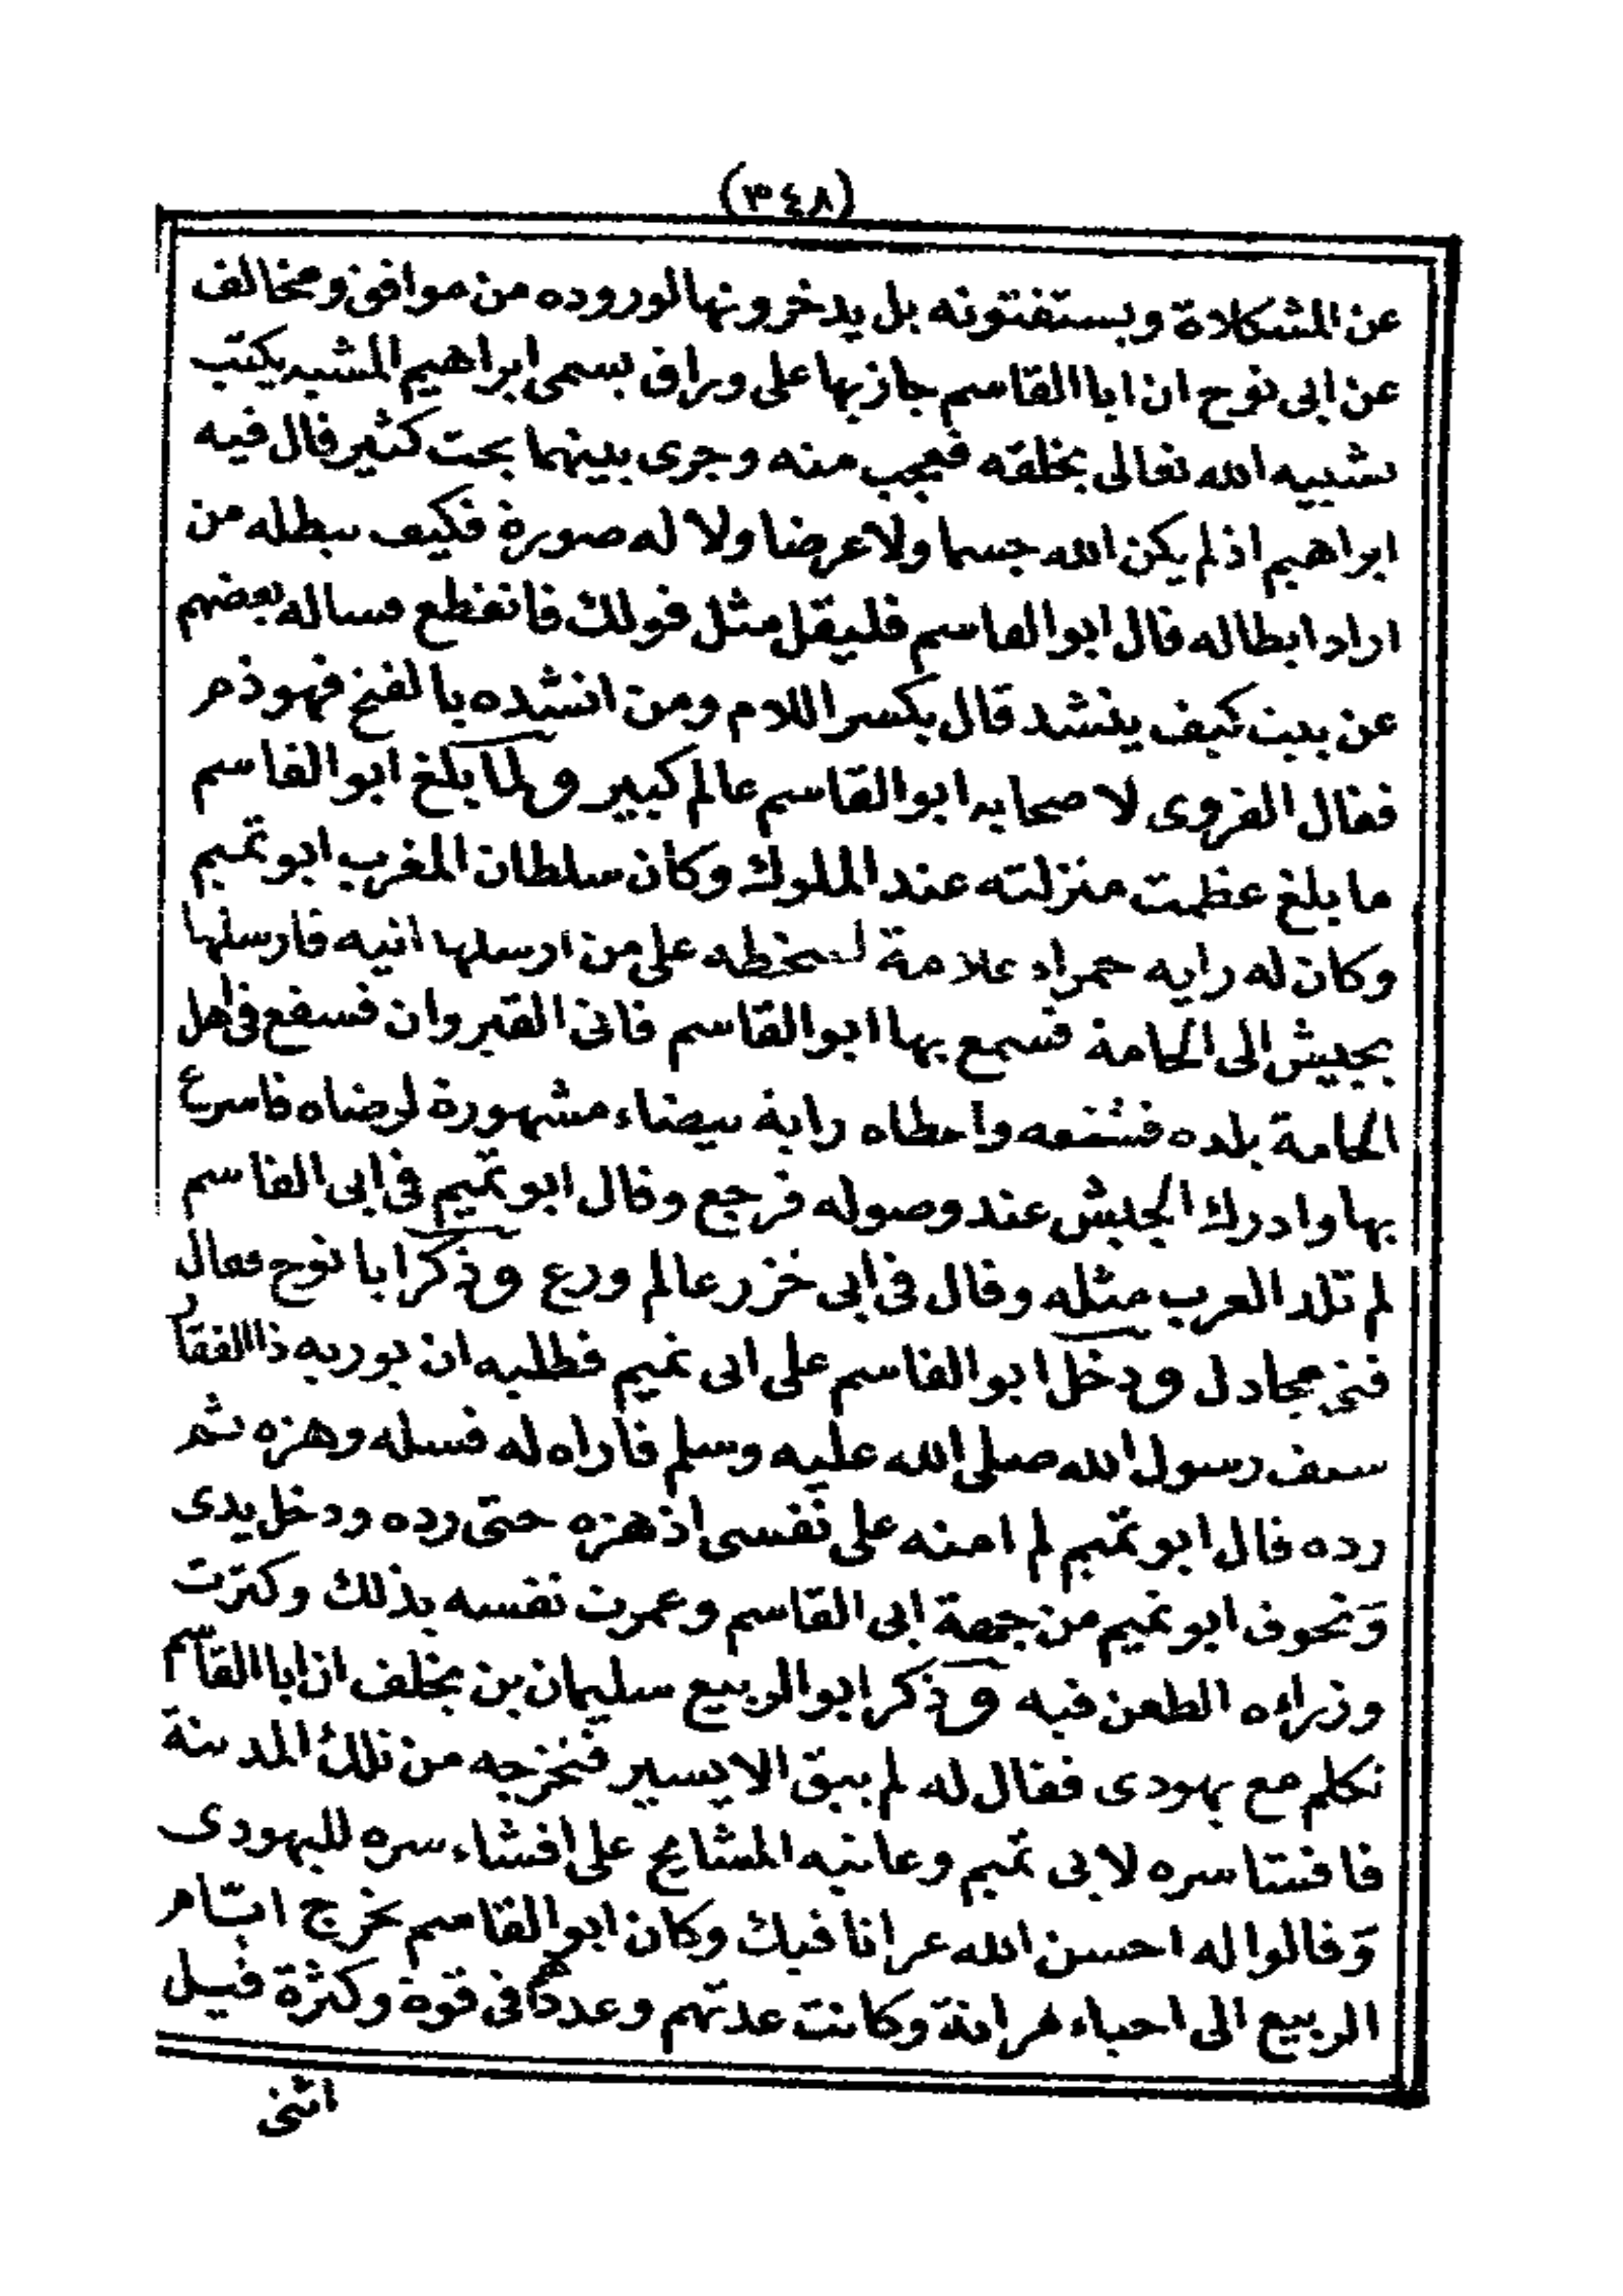 (٣٤٨)
عن المشكلاة ويستفتونه بل يدخرونها لوروده من موافق ومخالف
عن ابى نوح ان ابا القاسم جاز بها على وراق يسمى ابراهيم المشبه يكتب
تشبيه الله تعالى بخلقه فعجب منه وجرى بينهما بحت كثير قال فيه
ابراهيم اذ لم يكن الله جسما ولا عرضا ولا له صورة فكيف يبطله من
اراد ابطاله قال ابو القاسم فليقل مثل قولك فانقطع وساله بعضهم
عن بيت كيف ينشد قال بكسر اللام ومن انشده بالفتح فهو ذم
فقال القروى لاصحابه ابو القاسم عالم كبير ولما بلغ ابو القاسم
ما بلغ عظمت منزلته عند الملوك وكان سلطان المغرب ابو تميم
وكان له رايه حمراء علامة لسخطه على من ارسلها اليه فارسلها
بجيش الى الحامة فسمع بها ابو القاسم فاتى القيروان فسفع فى اهل
الحامة بلده فشفعه واعطاه راية بيضاء مشهورة لرضاه فاسرع
بها وادرك الجيش عند وصوله فرجع وقال ابو تميم فى ابى القاسم
لم تلد العرب مثله وقال فى ابى خزر عالم ورع وذكر ابا نوح فقال
فتى مجادل ودخل ابو القاسم على ابى تميم فطلبه ان يوريه ذا الفقار
سيف رسول الله صلى الله عليه وسلم فاراه له فسله وهزه ثم
رده قال ابو تميم لم امنه على نفسى اذ هزه حتى رده ودخل يدى
وتخوف ابو تميم من جهة ابى القاسم وعمرت نفسه بذلك وكثرت
وزراءه الطعن فيه وذكر ابو الربيع سليمان بن يخلف ان ابا القاسم
تكلم مع يهودى فقال له لم يبق الا يسير فنخرجه من تلك المدينة
فافشا سره لابى تميم وعاتبه المشايخ على افشاء سره لليهودى
وقالوا له احسن الله عزانا فيك وكان ابو القاسم يخرج ايام
الربيع الى احياء مزاتة وكانت عدتهم وعددهم فى قوة وكثرة قيل
اثنى